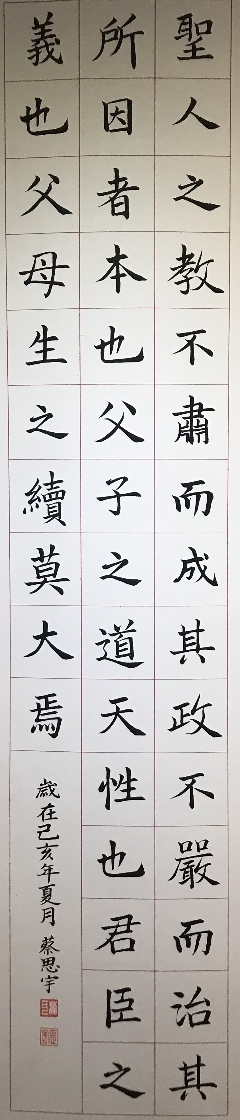 聖人之教不肅而成其政不嚴而治其
所因者本也父子之道天性也君臣之
義也父母生之續莫大焉
歲在己亥年夏月 蔡思宇